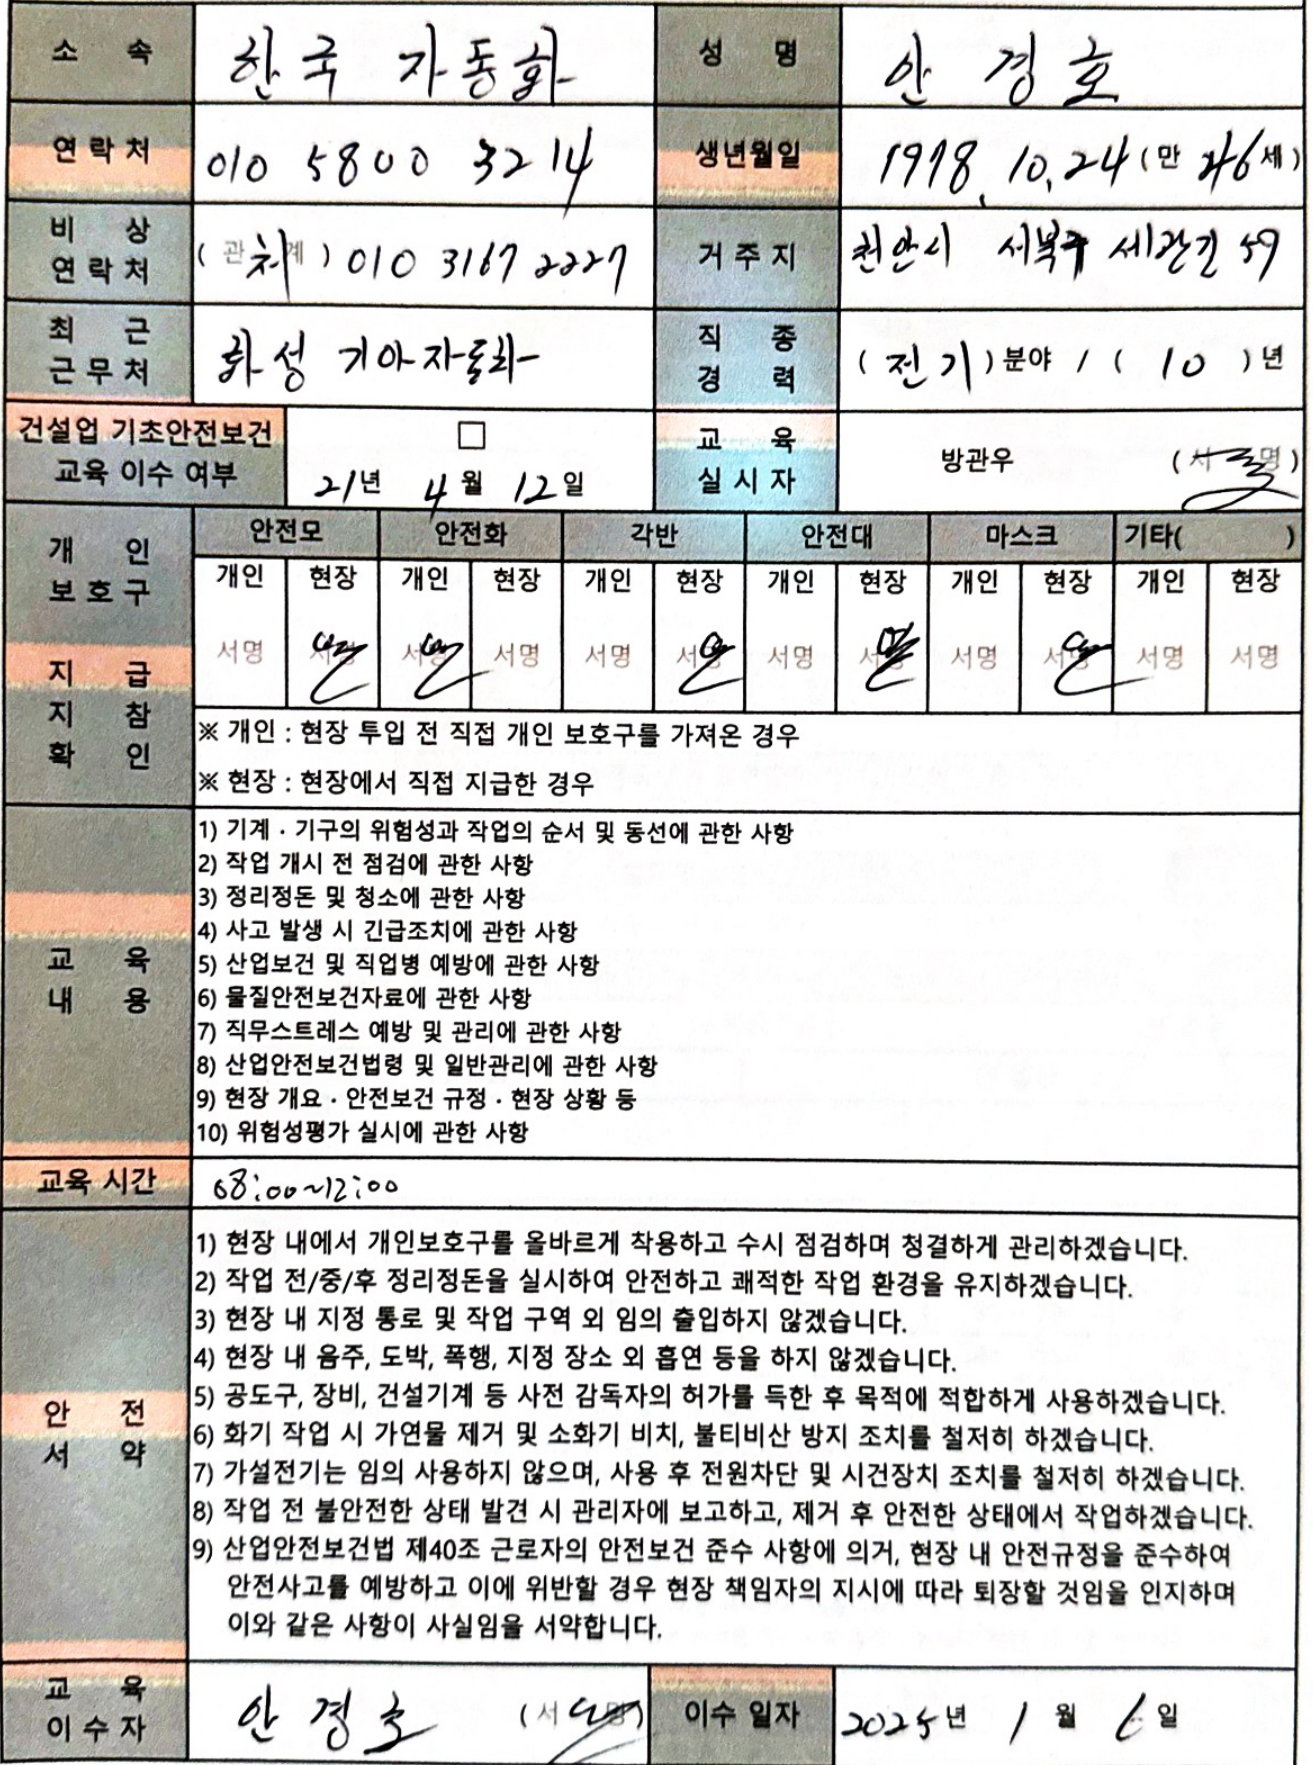 소 속 한국 자동화 성 명 안 경 호
연락처 010 5800 3214 생년월일 1978. 10. 24 (만 46세)
비 상 연락처 (관계 처) 010 3167 2227 거주지 천안시 서북구 세관길 59
최 근 근무처 화성 기아자동화 직 종 경 력 (전기)분야 / ( 10 )년
건설업 기초안전보건 □ 교 육
교육 이수 여부 21년 4월 12일 실시자 방관우 (서명)
개 인 보호구 지 급 지 참 확 인
안전모 안전화 각반 안전대 마스크 기타( )
개인 현장 개인 현장 개인 현장 개인 현장 개인 현장 개인 현장
서명 서명 서명 서명 서명 서명 서명 서명 서명 서명 서명 서명
※ 개인 : 현장 투입 전 직접 개인 보호구를 가져온 경우
※ 현장 : 현장에서 직접 지급한 경우
교 육 내 용
1) 기계 · 기구의 위험성과 작업의 순서 및 동선에 관한 사항
2) 작업 개시 전 점검에 관한 사항
3) 정리정돈 및 청소에 관한 사항
4) 사고 발생 시 긴급조치에 관한 사항
5) 산업보건 및 직업병 예방에 관한 사항
6) 물질안전보건자료에 관한 사항
7) 직무스트레스 예방 및 관리에 관한 사항
8) 산업안전보건법령 및 일반관리에 관한 사항
9) 현장 개요 · 안전보건 규정 · 현장 상황 등
10) 위험성평가 실시에 관한 사항
교육 시간 08:00~12:00
안 전 서 약
1) 현장 내에서 개인보호구를 올바르게 착용하고 수시 점검하며 청결하게 관리하겠습니다.
2) 작업 전/중/후 정리정돈을 실시하여 안전하고 쾌적한 작업 환경을 유지하겠습니다.
3) 현장 내 지정 통로 및 작업 구역 외 임의 출입하지 않겠습니다.
4) 현장 내 음주, 도박, 폭행, 지정 장소 외 흡연 등을 하지 않겠습니다.
5) 공도구, 장비, 건설기계 등 사전 감독자의 허가를 득한 후 목적에 적합하게 사용하겠습니다.
6) 화기 작업 시 가연물 제거 및 소화기 비치, 불티비산 방지 조치를 철저히 하겠습니다.
7) 가설전기는 임의 사용하지 않으며, 사용 후 전원차단 및 시건장치 조치를 철저히 하겠습니다.
8) 작업 전 불안전한 상태 발견 시 관리자에 보고하고, 제거 후 안전한 상태에서 작업하겠습니다.
9) 산업안전보건법 제40조 근로자의 안전보건 준수 사항에 의거, 현장 내 안전규정을 준수하여
안전사고를 예방하고 이에 위반할 경우 현장 책임자의 지시에 따라 퇴장할 것임을 인지하며
이와 같은 사항이 사실임을 서약합니다.
교 육 이수자 안 경 호 (서명) 이수 일자 2025년 1월 6일